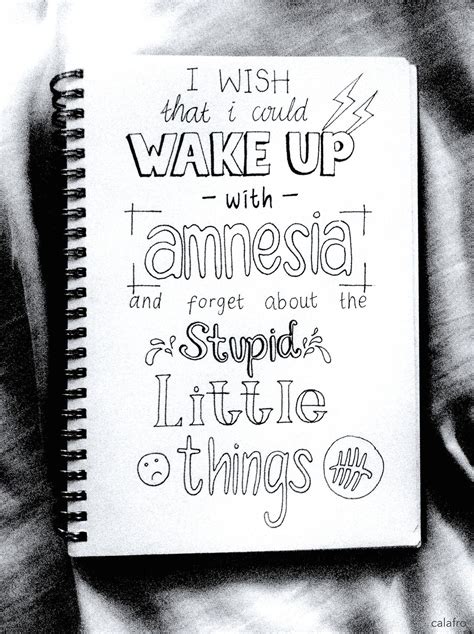 I WISH
that i could
WAKE UP
- with -
amnesia
and forget about the
Stupid
Little
things
calafro